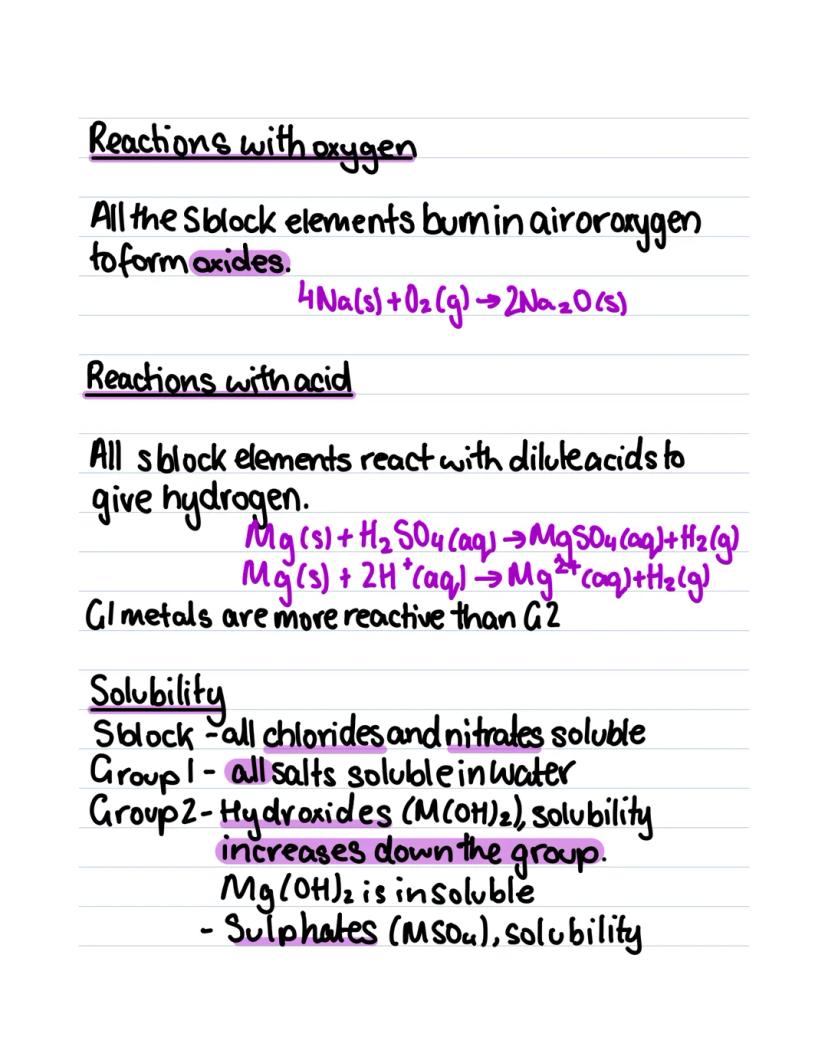 Reactions with oxygen
All the S block elements burn in air or oxygen
to form oxides.
4Na(s) + O₂(g) → 2Na₂O(s)
Reactions with acid
All s block elements react with dilute acids to
give hydrogen.
Mg(s) + H₂SO₄(aq) → MgSO₄(aq) + H₂(g)
Mg(s) + 2H⁺(aq) → Mg²⁺(aq) + H₂(g)
G1 metals are more reactive than G2
Solubility
S block - all chlorides and nitrates soluble
Group 1 - all salts soluble in water
Group 2 - Hydroxides (M(OH)₂), solubility
increases down the group.
Mg(OH)₂ is insoluble
- Sulphates (MSO₄), solubility